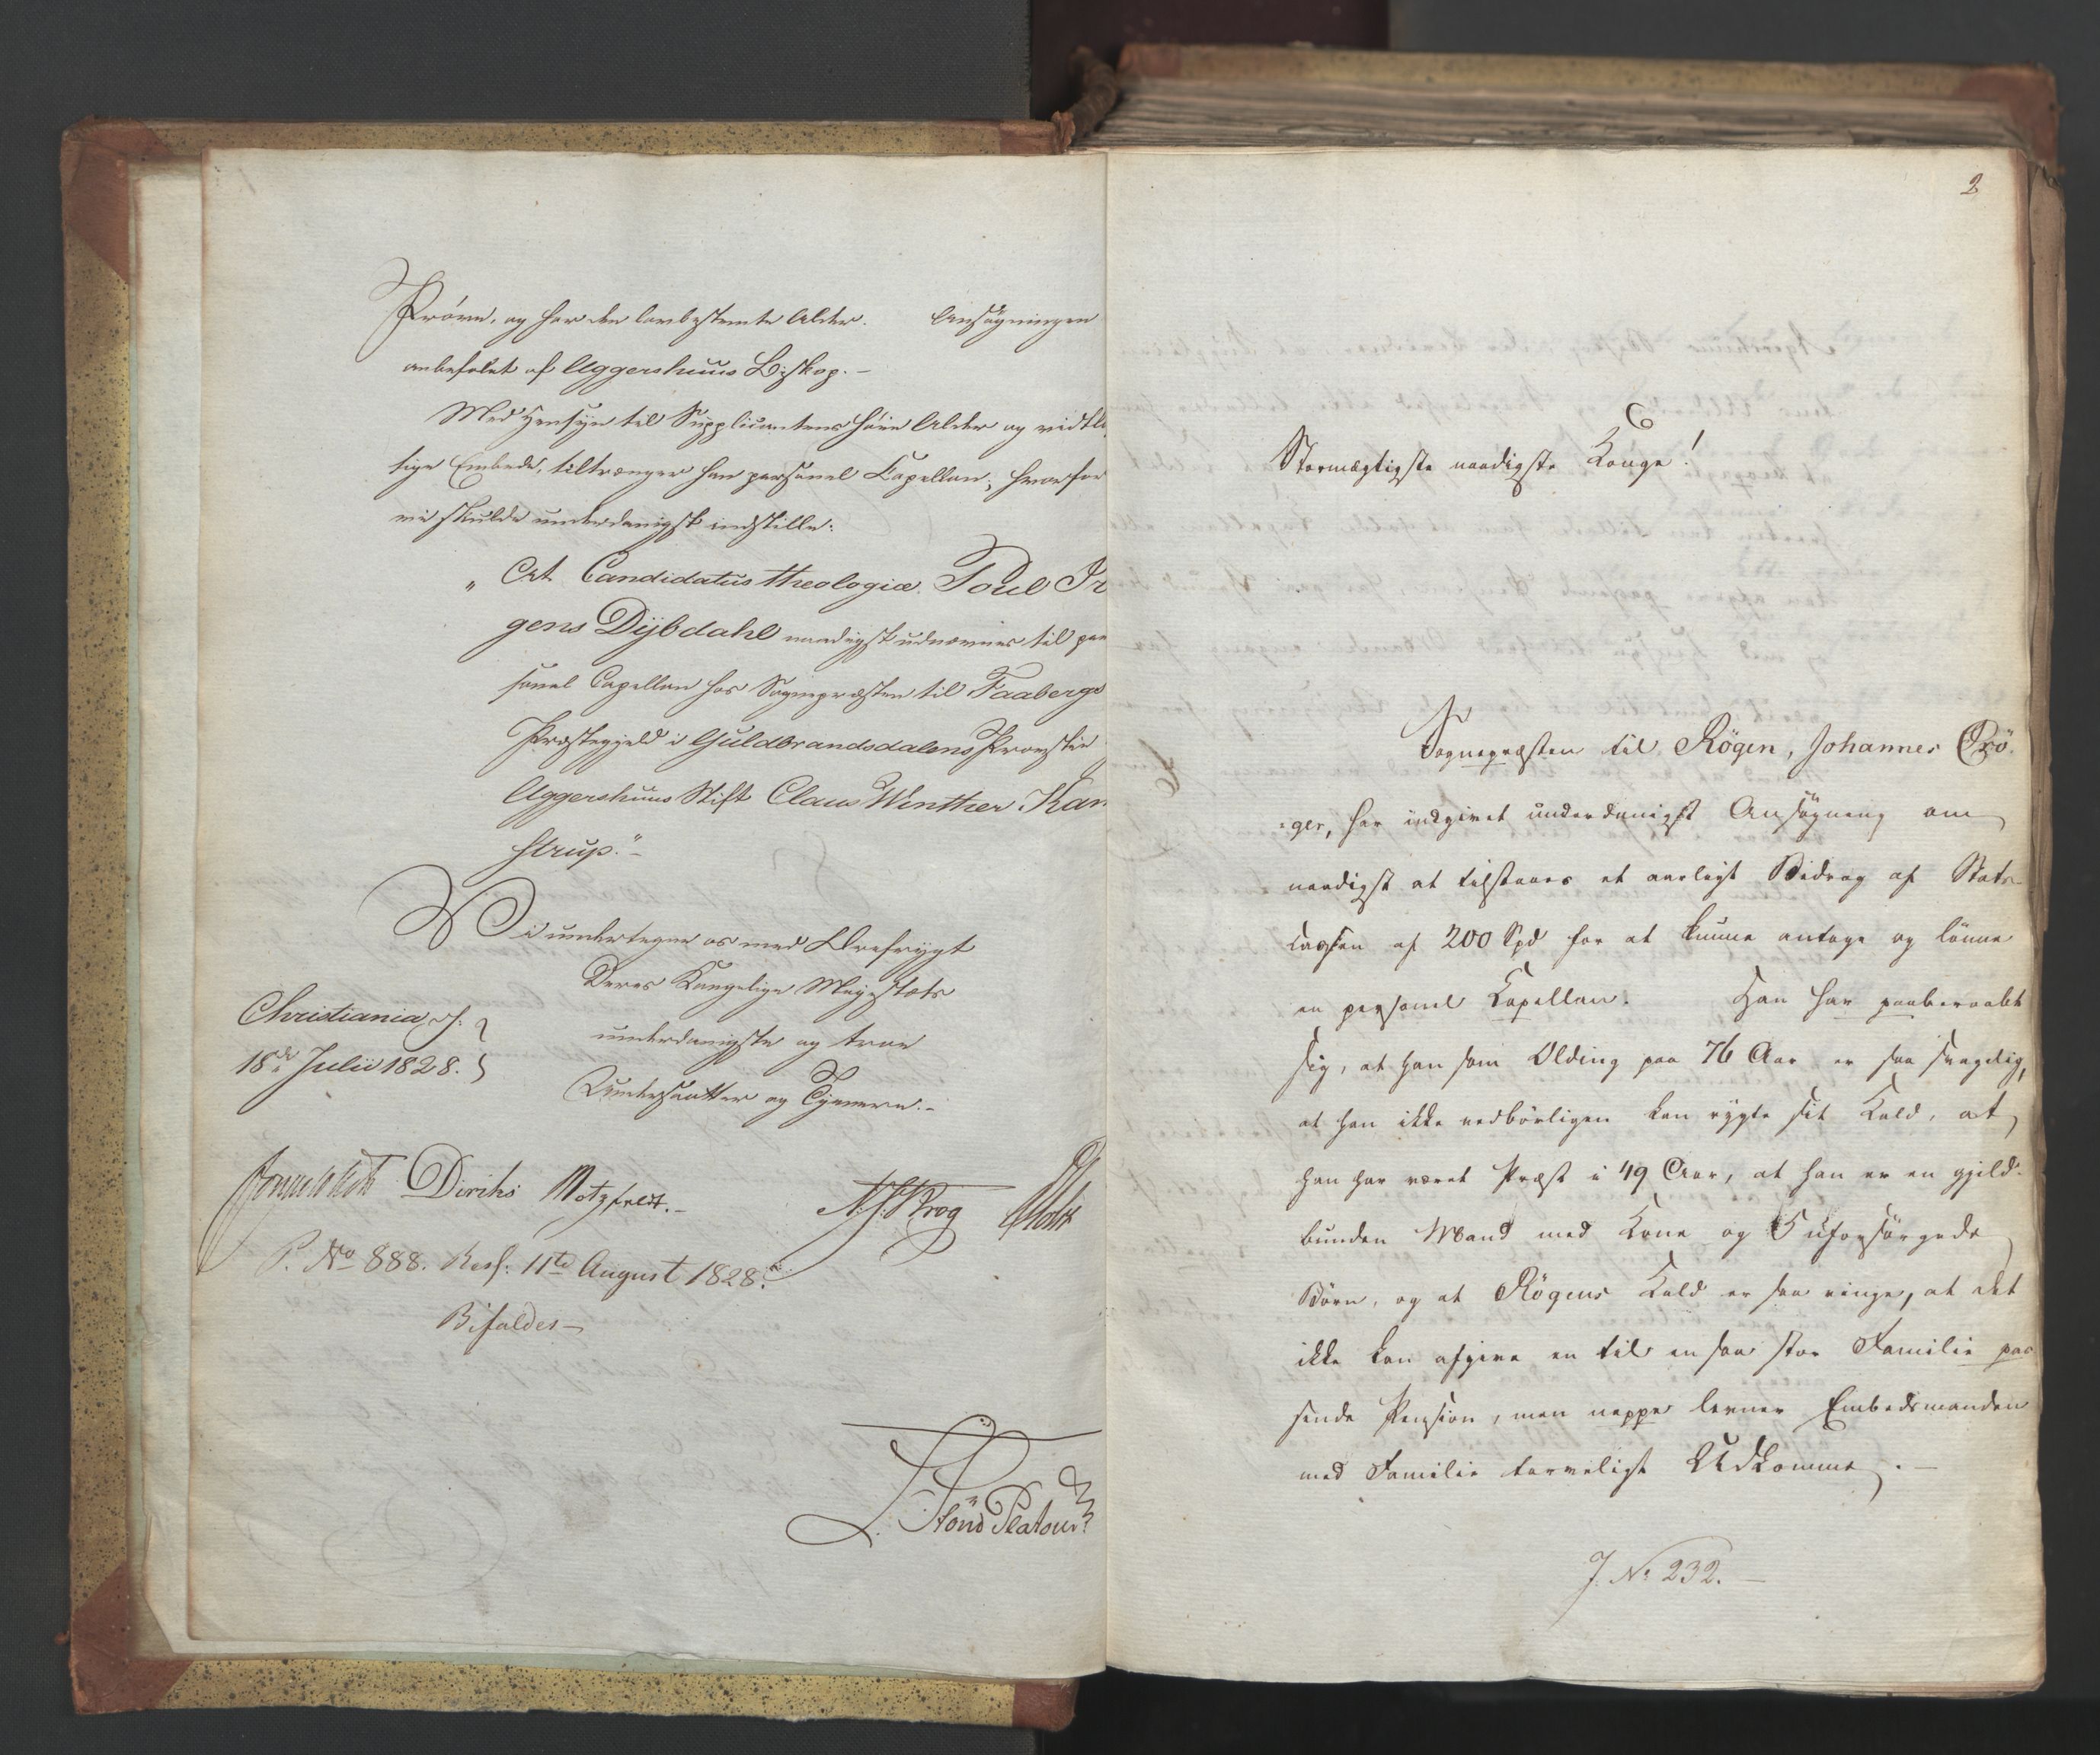 Prøve, og har den lovbestemte Alder. Ansøgningen
anbefalet af Aggershuus Biskop.-
Med Hensyn til Supplicantens høie Alder og vidtlø
tige Embede, tiltrænger han personel Capellan; hvorfor
vi skulde underdanigst indstille:
„At Candidatus theologiæ Poul Ir
gens Dÿbdahl naadigst udnævnes til per
sonel Capellan hos Sognepræsten til Faabergs
Præstegjeld i Guldbrandsdalens Provstie
Aggershuus Stift Claus Winther Kan
strup."-
Vi undertegne os med Ærefrygt
Deres Kongelige Majestæts
underdanigste og troe
Undersaatter og Tjenere.-
Christiania d.
18de Julii 1828.
Diriks Motzfeldt.- N. J. Krog Holst
P. No 888. Res: 11te August 1828.
Bifaldes-
L. Stoud Platou
2
Stormægtigste naadigste Konge!
Sognepræsten til Røgen, Johannes Crö-
ger, har indgivet underdanigst Ansøgning om
naadigst at tilstaaes et aarligt Bidrag af Stats-
cassen af 200 Spd for at kunne antage og lønne
en personel Kapellan. Han har paaberaabt
sig, at han som Olding paa 76 Aar er saa svagelig,
at han ikke vedbørligen kan rygte sit Kald, at
han har været Præst i 49 Aar, at han er en gjeld-
bunden Mand med Kone og 5 uforsørgede
Børn, og at Røgens Kald er saa ringe, at det
ikke kan afgive en til en saa stor Familie pas
sende Pension, men neppe levner Embedsmanden
med Familie tarveligt Udkomme.-
J. No 232.-